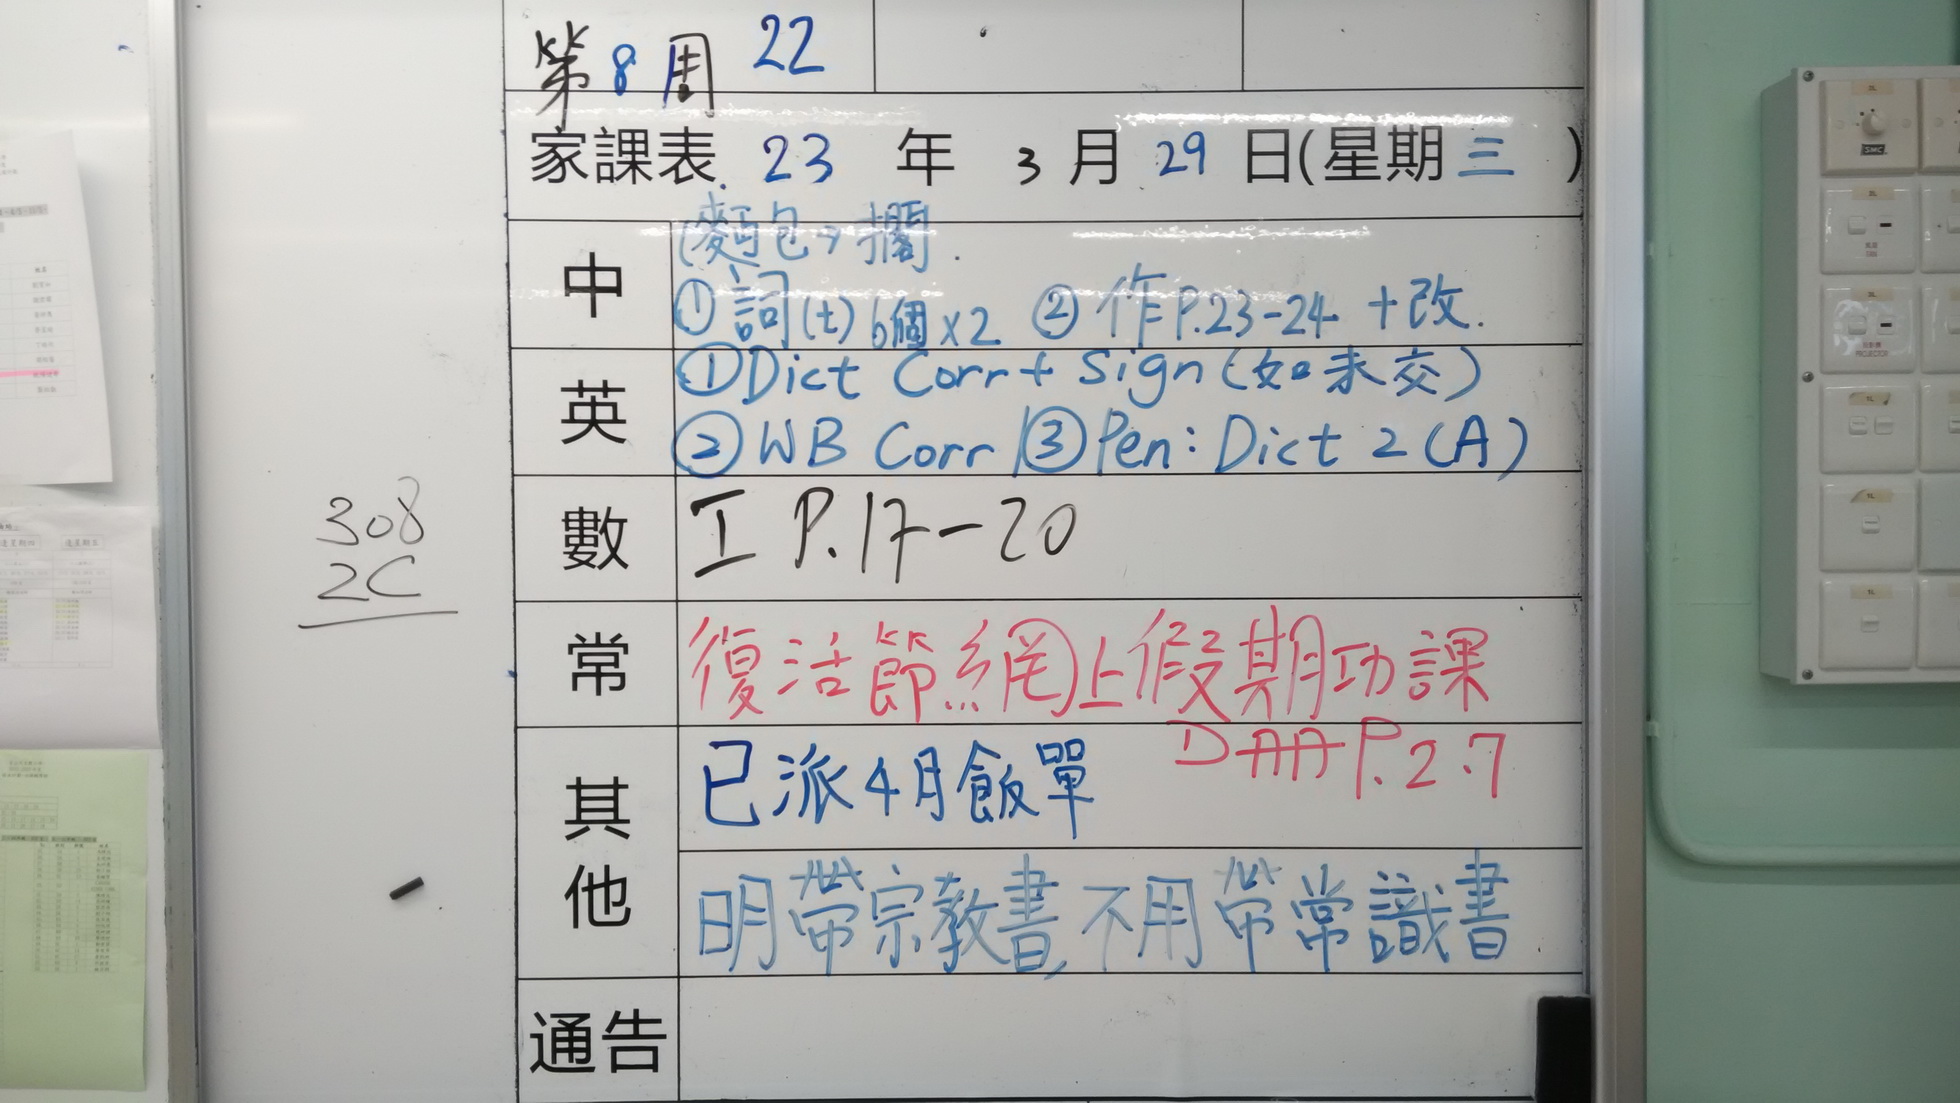 第8周 22
家課表 23 年 3 月 29 日(星期三)
中
(麵包→擱.
①詞(七)6個x2 ②作P.23-24 +改.
英
①Dict Corr+ Sign(如未交)
②WB Corr ③Pen: Dict 2(A)
數
工 P.17-20
常
復活節網上假期功課
DAA P.2.7
其他
已派4月飯單
明帶宗教書,不用帶常識書
通告
308
2C
SMC
PROJECTOR